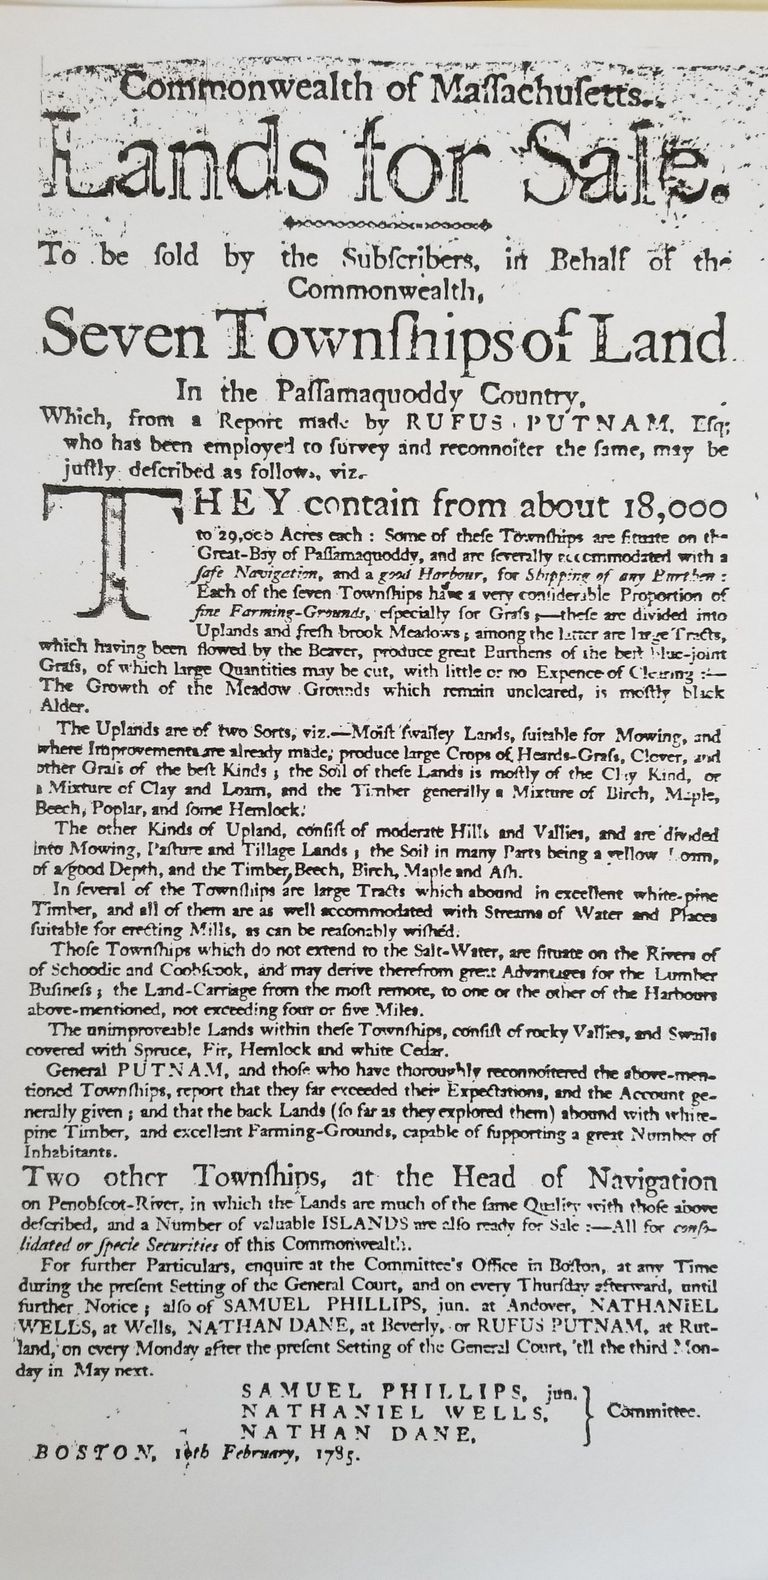 Commonwealth of Maſſachuſetts.
Lands for Sale.
To be ſold by the Subſcribers, in Behalf of the
Commonwealth,
Seven Townſhips of Land
In the Paſſamaquoddy Country,
Which, from a Report made by RUFUS PUTNAM, Eſq;
who has been employed to ſurvey and reconnoiter the ſame, may be
juſtly deſcribed as follows, viz.
THEY contain from about 18,000
to 29,000 Acres each : Some of theſe Townſhips are ſituate on the
Great-Bay of Paſſamaquoddy, and are ſeverally accommodated with a
ſafe Navigation, and a good Harbour, for Shipping of any Burthen :
Each of the ſeven Townſhips have a very conſiderable Proportion of
fine Farming-Grounds, eſpecially for Graſs ;—theſe are divided into
Uplands and freſh brook Meadows ; among the latter are large Tracts,
which having been flowed by the Beaver, produce great Burthens of the beſt blue-joint
Graſs, of which large Quantities may be cut, with little or no Expence of Clearing :—
The Growth of the Meadow Grounds which remain uncleared, is moſtly black
Alder.
The Uplands are of two Sorts, viz.—Moiſt ſwailey Lands, ſuitable for Mowing, and
where Improvements are already made, produce large Crops of Heards-Graſs, Clover, and
other Graſs of the beſt Kinds ; the Soil of theſe Lands is moſtly of the Clay Kind, or
a Mixture of Clay and Loam, and the Timber generally a Mixture of Birch, Maple,
Beech, Poplar, and ſome Hemlock.
The other Kinds of Upland, conſiſt of moderate Hills and Vallies, and are divided
into Mowing, Paſture and Tillage Lands ; the Soil in many Parts being a yellow Loam,
of a good Depth, and the Timber, Beech, Birch, Maple and Aſh.
In ſeveral of the Townſhips are large Tracts which abound in excellent white-pine
Timber, and all of them are as well accommodated with Streams of Water and Places
ſuitable for erecting Mills, as can be reaſonably wiſhed.
Thoſe Townſhips which do not extend to the Salt-Water, are ſituate on the Rivers of
of Schoodic and Cobſcook, and may derive therefrom great Advantages for the Lumber
Buſineſs ; the Land-Carriage from the moſt remote, to one or the other of the Harbours
above-mentioned, not exceeding four or five Miles.
The unimproveable Lands within theſe Townſhips, conſiſt of rocky Vallies, and Swails
covered with Spruce, Fir, Hemlock and white Cedar.
General PUTNAM, and thoſe who have thoroughly reconnoitered the above-men-
tioned Townſhips, report that they far exceeded their Expectations, and the Account ge-
nerally given ; and that the back Lands (ſo far as they explored them) abound with white-
pine Timber, and excellent Farming-Grounds, capable of ſupporting a great Number of
Inhabitants.
Two other Townſhips, at the Head of Navigation
on Penobſcot-River, in which the Lands are much of the ſame Quality with thoſe above
deſcribed, and a Number of valuable ISLANDS are alſo ready for Sale :—All for conſo-
lidated or ſpecie Securities of this Commonwealth.
For further Particulars, enquire at the Committee's Office in Boſton, at any Time
during the preſent Setting of the General Court, and on every Thurſday afterward, until
further Notice ; alſo of SAMUEL PHILLIPS, jun. at Andover, NATHANIEL
WELLS, at Wells, NATHAN DANE, at Beverly, or RUFUS PUTNAM, at Rut-
land, on every Monday after the preſent Setting of the General Court, 'till the third Mon-
day in May next.
SAMUEL PHILLIPS, jun.
NATHANIEL WELLS,
NATHAN DANE,
} Committee.
BOSTON, February, 1785.